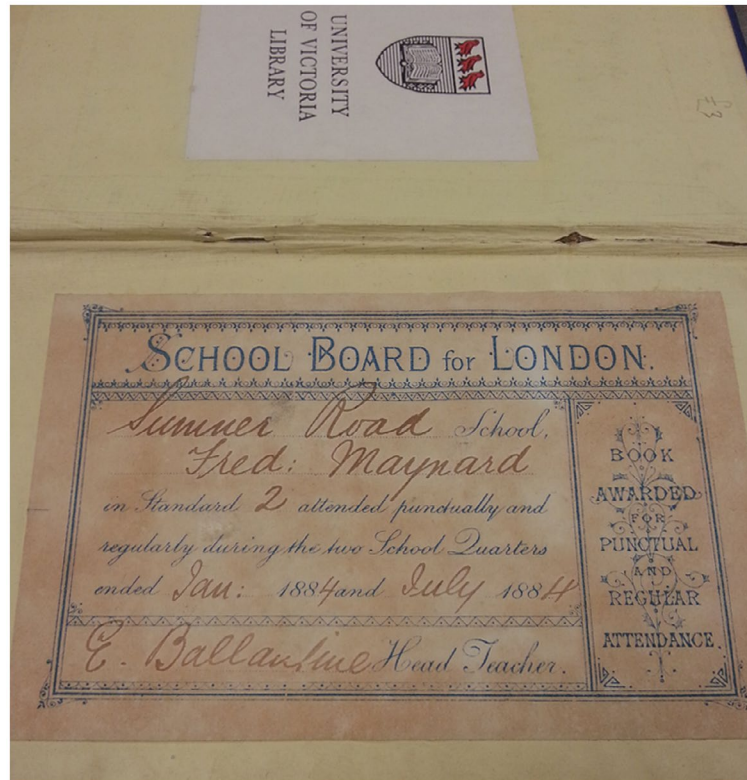 UNIVERSITY
OF VICTORIA
LIBRARY
£3
SCHOOL BOARD for LONDON.
Sumner Road School,
Fred: Maynard
in Standard 2 attended punctually and
regularly during the two School Quarters
ended Jan: 1884 and July 1884
E. Ballantine Head Teacher.
BOOK
AWARDED
FOR
PUNCTUAL
AND
REGULAR
ATTENDANCE.